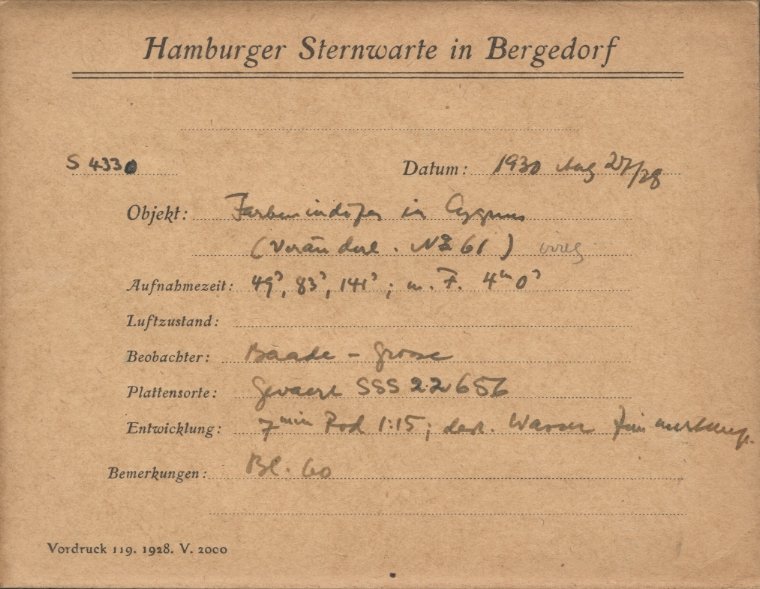 Hamburger Sternwarte in Bergedorf
S 4330 Datum: 1930 Aug 27/28
Objekt: Farbenindizes in Cygnus
(Veränderl. NZ 61)
Aufnahmezeit: 49s, 83s, 141s; m. F. 4m 0s
Luftzustand:
Beobachter: Baade - Grosse
Plattensorte: Gevaert SSS 22656
Entwicklung: 7min Rod 1:15; dest. Wasser
Bemerkungen: Bl. 60
Vordruck 119. 1928. V. 2000